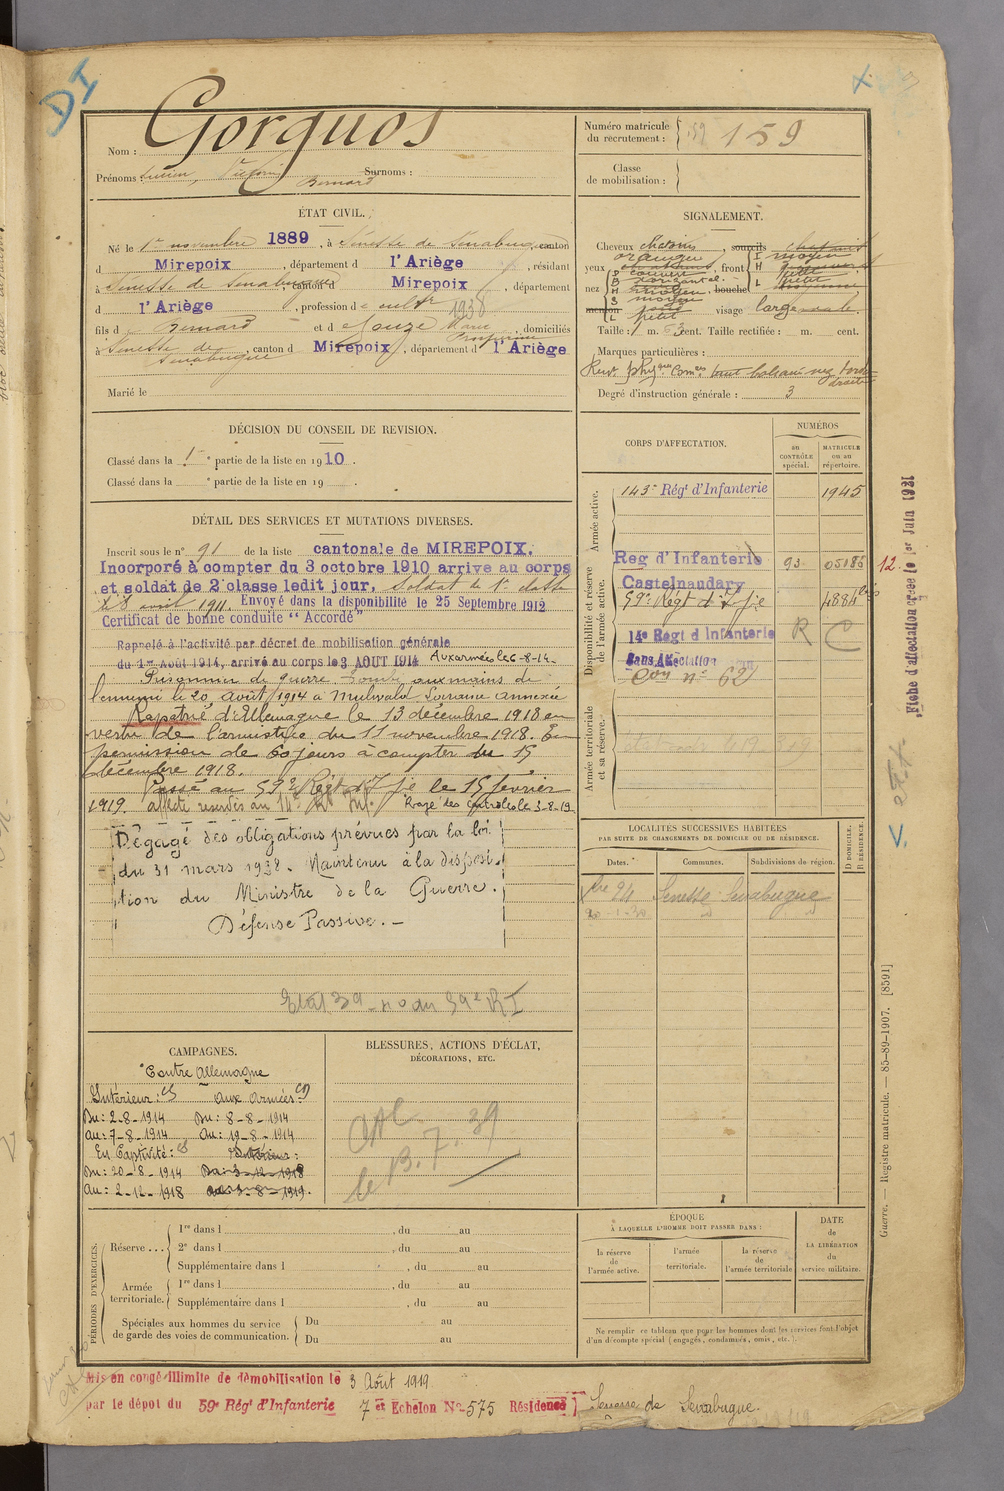 DI
Nom : Gorguos
Prénoms Lucien, Victorin Bernard Surnoms :
Numéro matricule du recrutement : 159
Classe de mobilisation :
ÉTAT CIVIL.
Né le 1er novembre 1889, à Senesse de Senabugue, canton
d Mirepoix, département d l'Ariège, résidant
à Senesse de Senabugue canton d Mirepoix, département
d l'Ariège, profession de cultr 1938
fils d Bernard et d Marie, domiciliés
à Senesse de Senabugue, canton d Mirepoix, département d l'Ariège
Marié le
SIGNALEMENT.
Cheveux chatains, sourcils chatains
yeux, front
nez, bouche
menton, visage large
Taille : 1 m. 63 cent. Taille rectifiée : m. cent.
Marques particulières :
Degré d'instruction générale : 3
DÉCISION DU CONSEIL DE REVISION.
Classé dans la 1re partie de la liste en 1910.
Classé dans la e partie de la liste en 19 .
DÉTAIL DES SERVICES ET MUTATIONS DIVERSES.
Inscrit sous le n° 91 de la liste cantonale de MIREPOIX.
Incorporé à compter du 3 octobre 1910 arrive au corps
et soldat de 2e classe ledit jour. Soldat de 1e classe
le 8 avril 1911. Envoyé dans la disponibilité le 25 Septembre 1912
Certificat de bonne conduite "Accordé"
Rappelé à l'activité par décret de mobilisation générale
du 1er Août 1914, arrivé au corps le 3 AOUT 1914 Aux armées le 6-8-14.
Prisonnier de guerre tombé aux mains de
l'ennemi le 20 août 1914 à Mulwald Lorraine annexée
Rapatrié d'Allemagne le 13 décembre 1918 en
vertu de l'armistice du 11 novembre 1918. En
permission de 60 jours à compter du 15
décembre 1918.
Passé au 59e Régt d'Ife le 15 février
1919. affecté réservés au 14e Rt Inf. Rayé des controles le 3-8-19
Dégagé des obligations prévues par la loi
du 31 mars 1928. Maintenu à la disposi-
tion du Ministre de la Guerre.
Défense Passive. -
Etat 39 - n° du 59e RI
CORPS D'AFFECTATION.
NUMÉROS
au CONTRÔLE spécial.
MATRICULE ou au répertoire.
Armée active.
143e Régt d'Infanterie 1945
Disponibilité et réserve de l'armée active.
Reg d'Infanterie 93 05185 12.
Castelnaudary
59e Régt d'Ife 4884 bis
14e Regt d Infanterie R C
Sans Affectation
n° 62
Armée territoriale et sa réserve.
Fiche d'affectation créée le 1er Juin 1921
LOCALITÉS SUCCESSIVES HABITÉES
PAR SUITE DE CHANGEMENTS DE DOMICILE OU DE RÉSIDENCE.
Dates. Communes. Subdivisions de région. D DOMICILE. R RÉSIDENCE.
24 Senesse Senabugue
CAMPAGNES.
Contre Allemagne
Intérieur : CS aux armées : CD
Du : 2-8-1914 Du : 8-8-1914
Au : 7-8-1914 Au : 19-8-1914
En Captivité : CS Intérieur :
Du : 20-8-1914 Du : 3-12-1918
Au : 2-12-1918 Au : 3-8-1919.
BLESSURES, ACTIONS D'ÉCLAT,
DÉCORATIONS, ETC.
CAL
le 13.7.39
PÉRIODES D'EXERCICES.
Réserve ... 1re dans l , du au
2e dans l , du au
Supplémentaire dans l , du au
Armée territoriale. 1re dans l , du au
Supplémentaire dans l , du au
Spéciales aux hommes du service de garde des voies de communication. Du au
Du au
ÉPOQUE
À LAQUELLE L'HOMME DOIT PASSER DANS :
la réserve de l'armée active. l'armée territoriale. la réserve de l'armée territoriale
DATE de LA LIBÉRATION du service militaire.
Ne remplir ce tableau que pour les hommes dont les services font l'objet
d'un décompte spécial (engagés, condamnés, omis, etc.).
Guerre. — Registre matricule. — 85-89-1907. [8591]
Mis en congé illimité de démobilisation le 3 Août 1919
par le dépot du 59e Régt d'Infanterie 7 et Echelon No 575 Résidence Senesse de Senabugue.